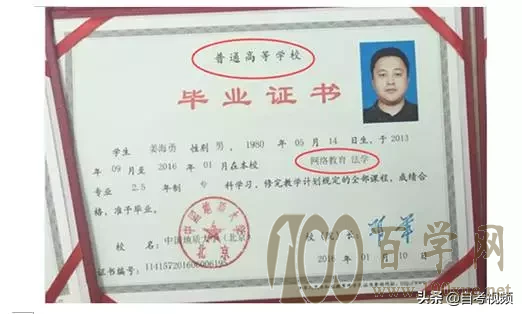 普通高等学校
毕业证书
学生 姜海勇 性别 男，1980 年 05 月 14 日生，于 2013
年 09 月至 2016 年 01 月在本校 网络教育 法学
专业 2.5 年制 专 科学习，修完教学计划规定的全部课程，成绩合
格，准予毕业。
校 名：中国地质大学（北京） 校（院）长
中国地质大学 北京
证书编号：114157201606006195 2016 年 01 月 10 日
100百学网
头条@自考视频